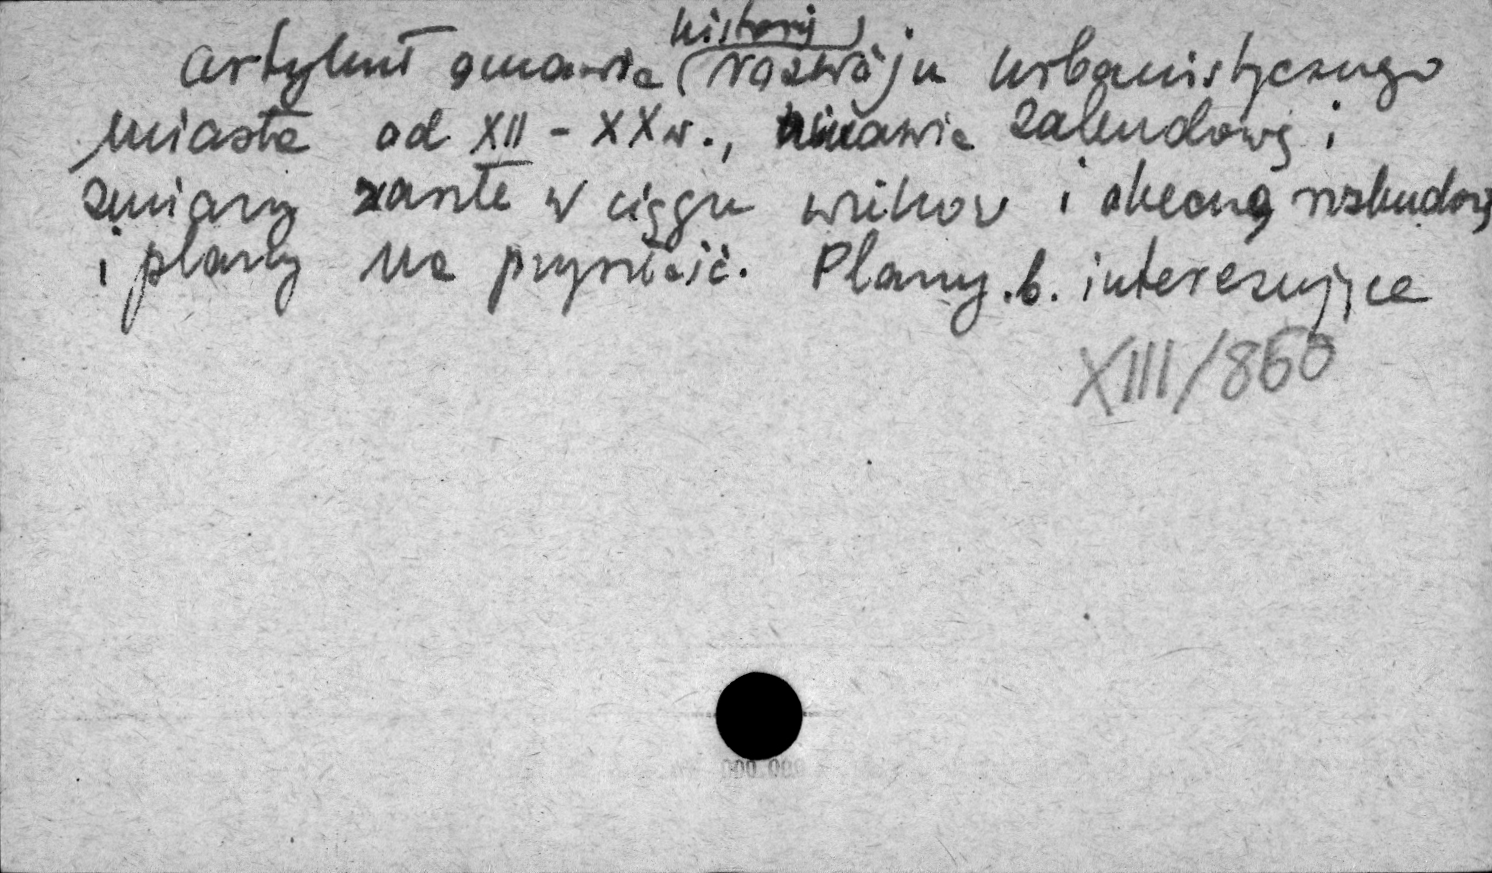 historię
artykuł omawia rozwoju urbanistycznego
miasta od XII - XX w., omawia zabudowę i
zmiany zaszłe w ciągu wieków i obecną rozbudowę
i plany na przyszłość. Plany b. interesujące
XIII/860